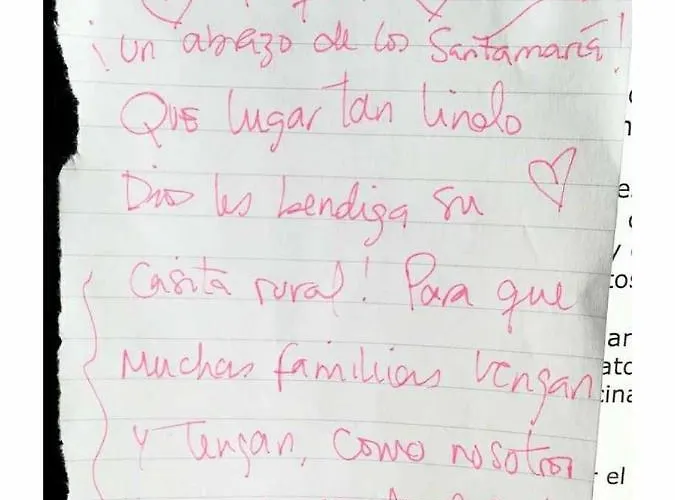 ¡un abrazo de los Santamaría!
Que lugar tan lindo
Dios les bendiga su
Casita rural! Para que
Muchas familias Vengan
y Tengan, como nosotros
el